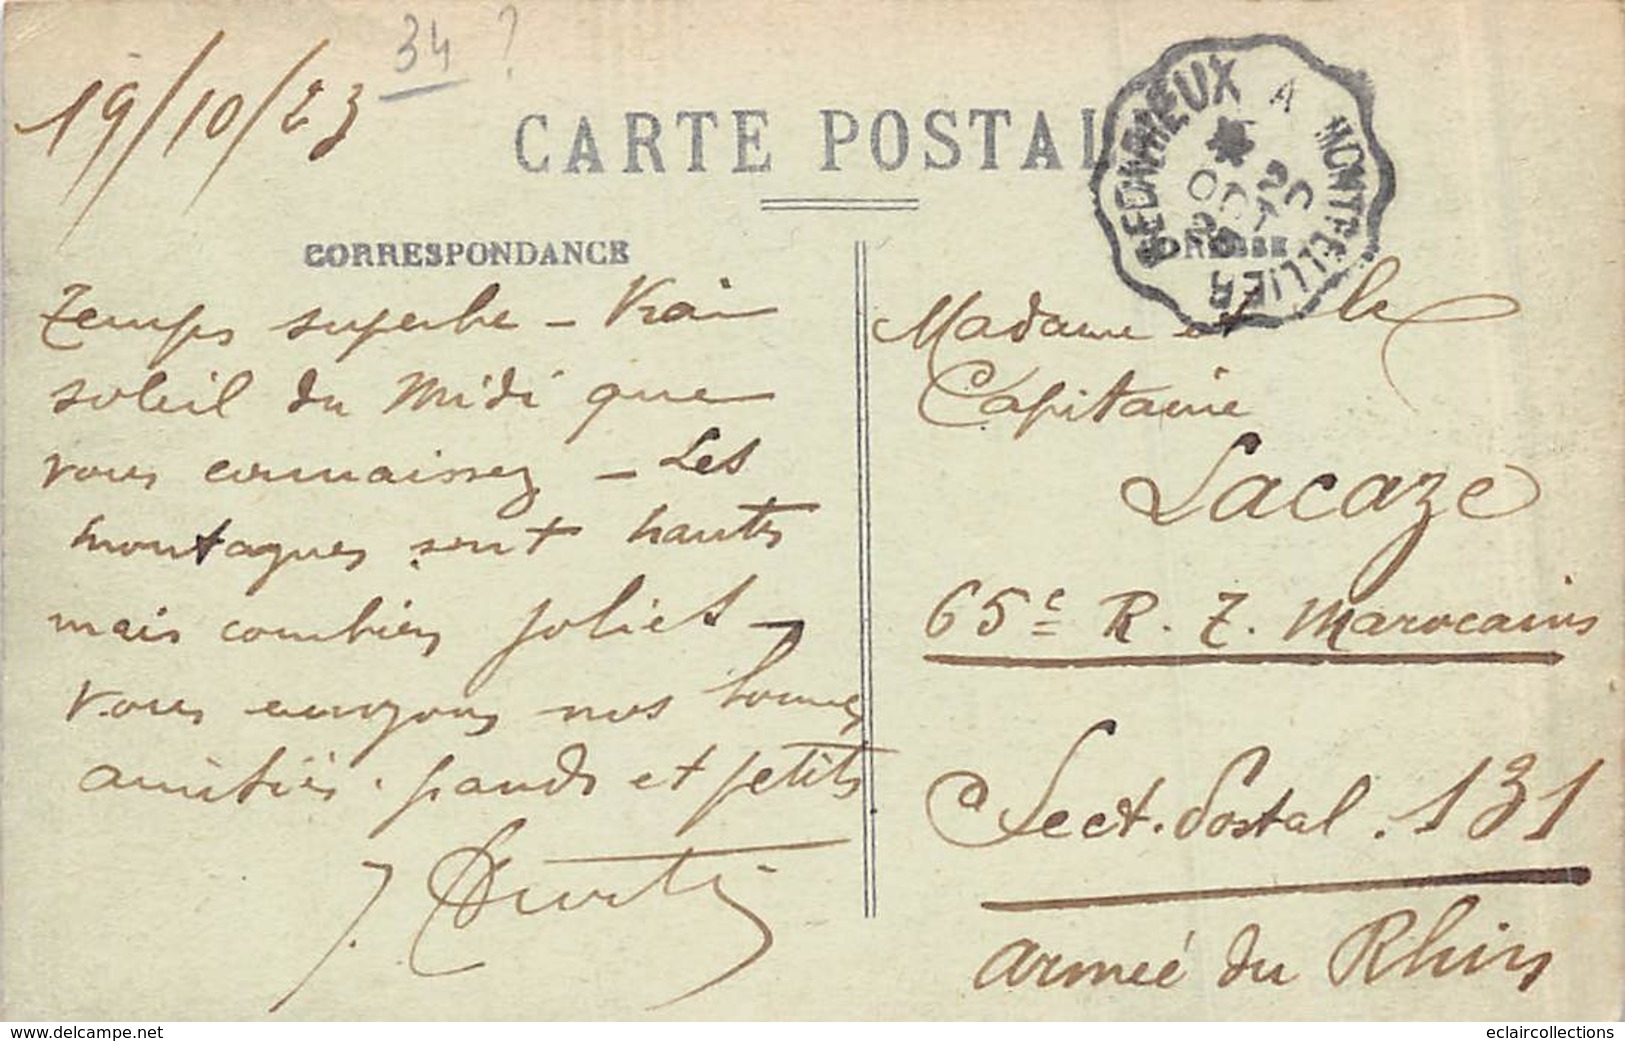 34 ?
19/10/23
CARTE POSTALE
BEDARIEUX A MONTPELLIER
20
OCT
23
CORRESPONDANCE
ADRESSE
Temps superbe – Vrai
soleil du Midi que
vous connaissez – Les
montagnes sont hautes
mais combien jolies –
vous envoyons nos bonnes
amitiés. grands et petits
J.
Madame et le
Capitaine
Lacaze
65e R. T. Marocains
Sect. Postal. 131
Armée du Rhin
www.delcampe.net
eclaircollections